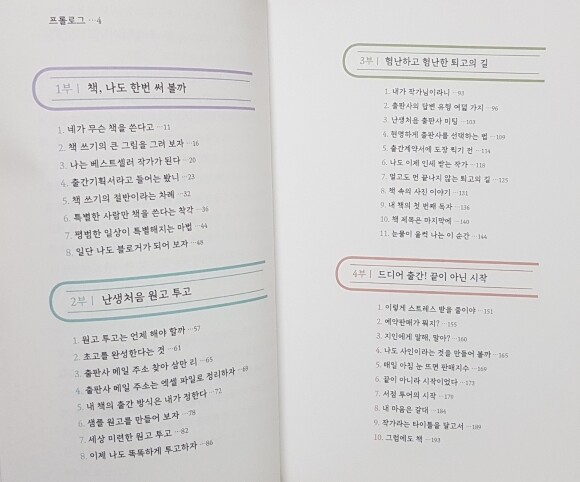 프롤로그 ··· 4
1부 | 책, 나도 한번 써 볼까
1. 네가 무슨 책을 쓴다고 ··· 11
2. 책 쓰기의 큰 그림을 그려 보자 ··· 16
3. 나는 베스트셀러 작가가 된다 ··· 20
4. 출간기획서라고 들어는 봤니 ··· 23
5. 책 쓰기의 절반이라는 차례 ··· 32
6. 특별한 사람만 책을 쓴다는 착각 ··· 36
7. 평범한 일상이 특별해지는 마법 ··· 44
8. 일단 나도 블로거가 되어 보자 ··· 48
2부 | 난생처음 원고 투고
1. 원고 투고는 언제 해야 할까 ··· 57
2. 초고를 완성한다는 것 ··· 61
3. 출판사 메일 주소 찾아 삼만 리 ··· 65
4. 출판사 메일 주소는 엑셀 파일로 정리하자 ··· 69
5. 내 책의 출간 방식은 내가 정한다 ··· 72
6. 샘플 원고를 만들어 보자 ··· 78
7. 세상 미련한 원고 투고 ··· 82
8. 이제 나도 똑똑하게 투고하자 ··· 86
3부 | 험난하고 험난한 퇴고의 길
1. 내가 작가님이라니 ··· 93
2. 출판사의 답변 유형 여덟 가지 ··· 96
3. 난생처음 출판사 미팅 ··· 103
4. 현명하게 출판사를 선택하는 법 ··· 109
5. 출간계약서에 도장 찍기 전 ··· 114
6. 나도 이제 인세 받는 작가 ··· 118
7. 멀고도 먼 끝나지 않는 퇴고의 길 ··· 125
8. 책 속의 사진 이야기 ··· 131
9. 내 책의 첫 번째 독자 ··· 136
10. 책 제목은 마지막에 ··· 140
11. 눈물이 울컥 나는 이 순간 ··· 144
4부 | 드디어 출간! 끝이 아닌 시작
1. 이렇게 스트레스 받을 줄이야 ··· 151
2. 예약판매가 뭐지? ··· 155
3. 지인에게 말해, 말아? ··· 160
4. 나도 사인이라는 것을 만들어 볼까 ··· 165
5. 매일 아침 눈 뜨면 판매지수 ··· 169
6. 끝이 아니라 시작이었다 ··· 173
7. 서점 투어의 시작 ··· 179
8. 내 마음은 갈대 ··· 184
9. 작가라는 타이틀을 달고서 ··· 189
10. 그럼에도 책 ··· 193